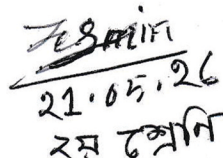 Jesmin
21.05.26
২য় শ্রেণি